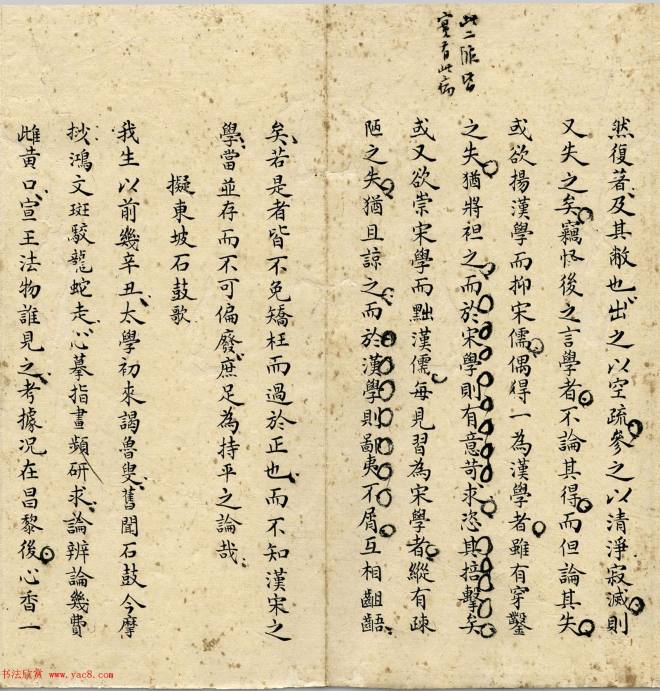 此二般皆
實有此病
然復著及其敝也出之以空疏參之以清淨寂滅則
又失之矣竊怪後之言學者不論其得而但論其失
或欲揚漢學而抑宋儒偶得一為漢學者雖有穿鑿
之失猶將袒之而於宋學則有意苛求恣其掊擊矣
或又欲崇宋學而黜漢儒每見習為宋學者縱有疎
陋之失猶且諒之而於漢學則鄙夷不屑互相齟齬
矣若是者皆不免矯枉而過於正也而不知漢宋之
學當並存而不可偏廢庶足為持平之論哉
擬東坡石鼓歌
我生以前幾辛丑太學初來謁魯叟舊聞石鼓今摩
抄鴻文斑駮龍蛇走心摹指畫頻研求論辨論幾費
雌黄口宣王法物誰見之考據況在昌黎後心香一
书法欣赏 www.yac8.com